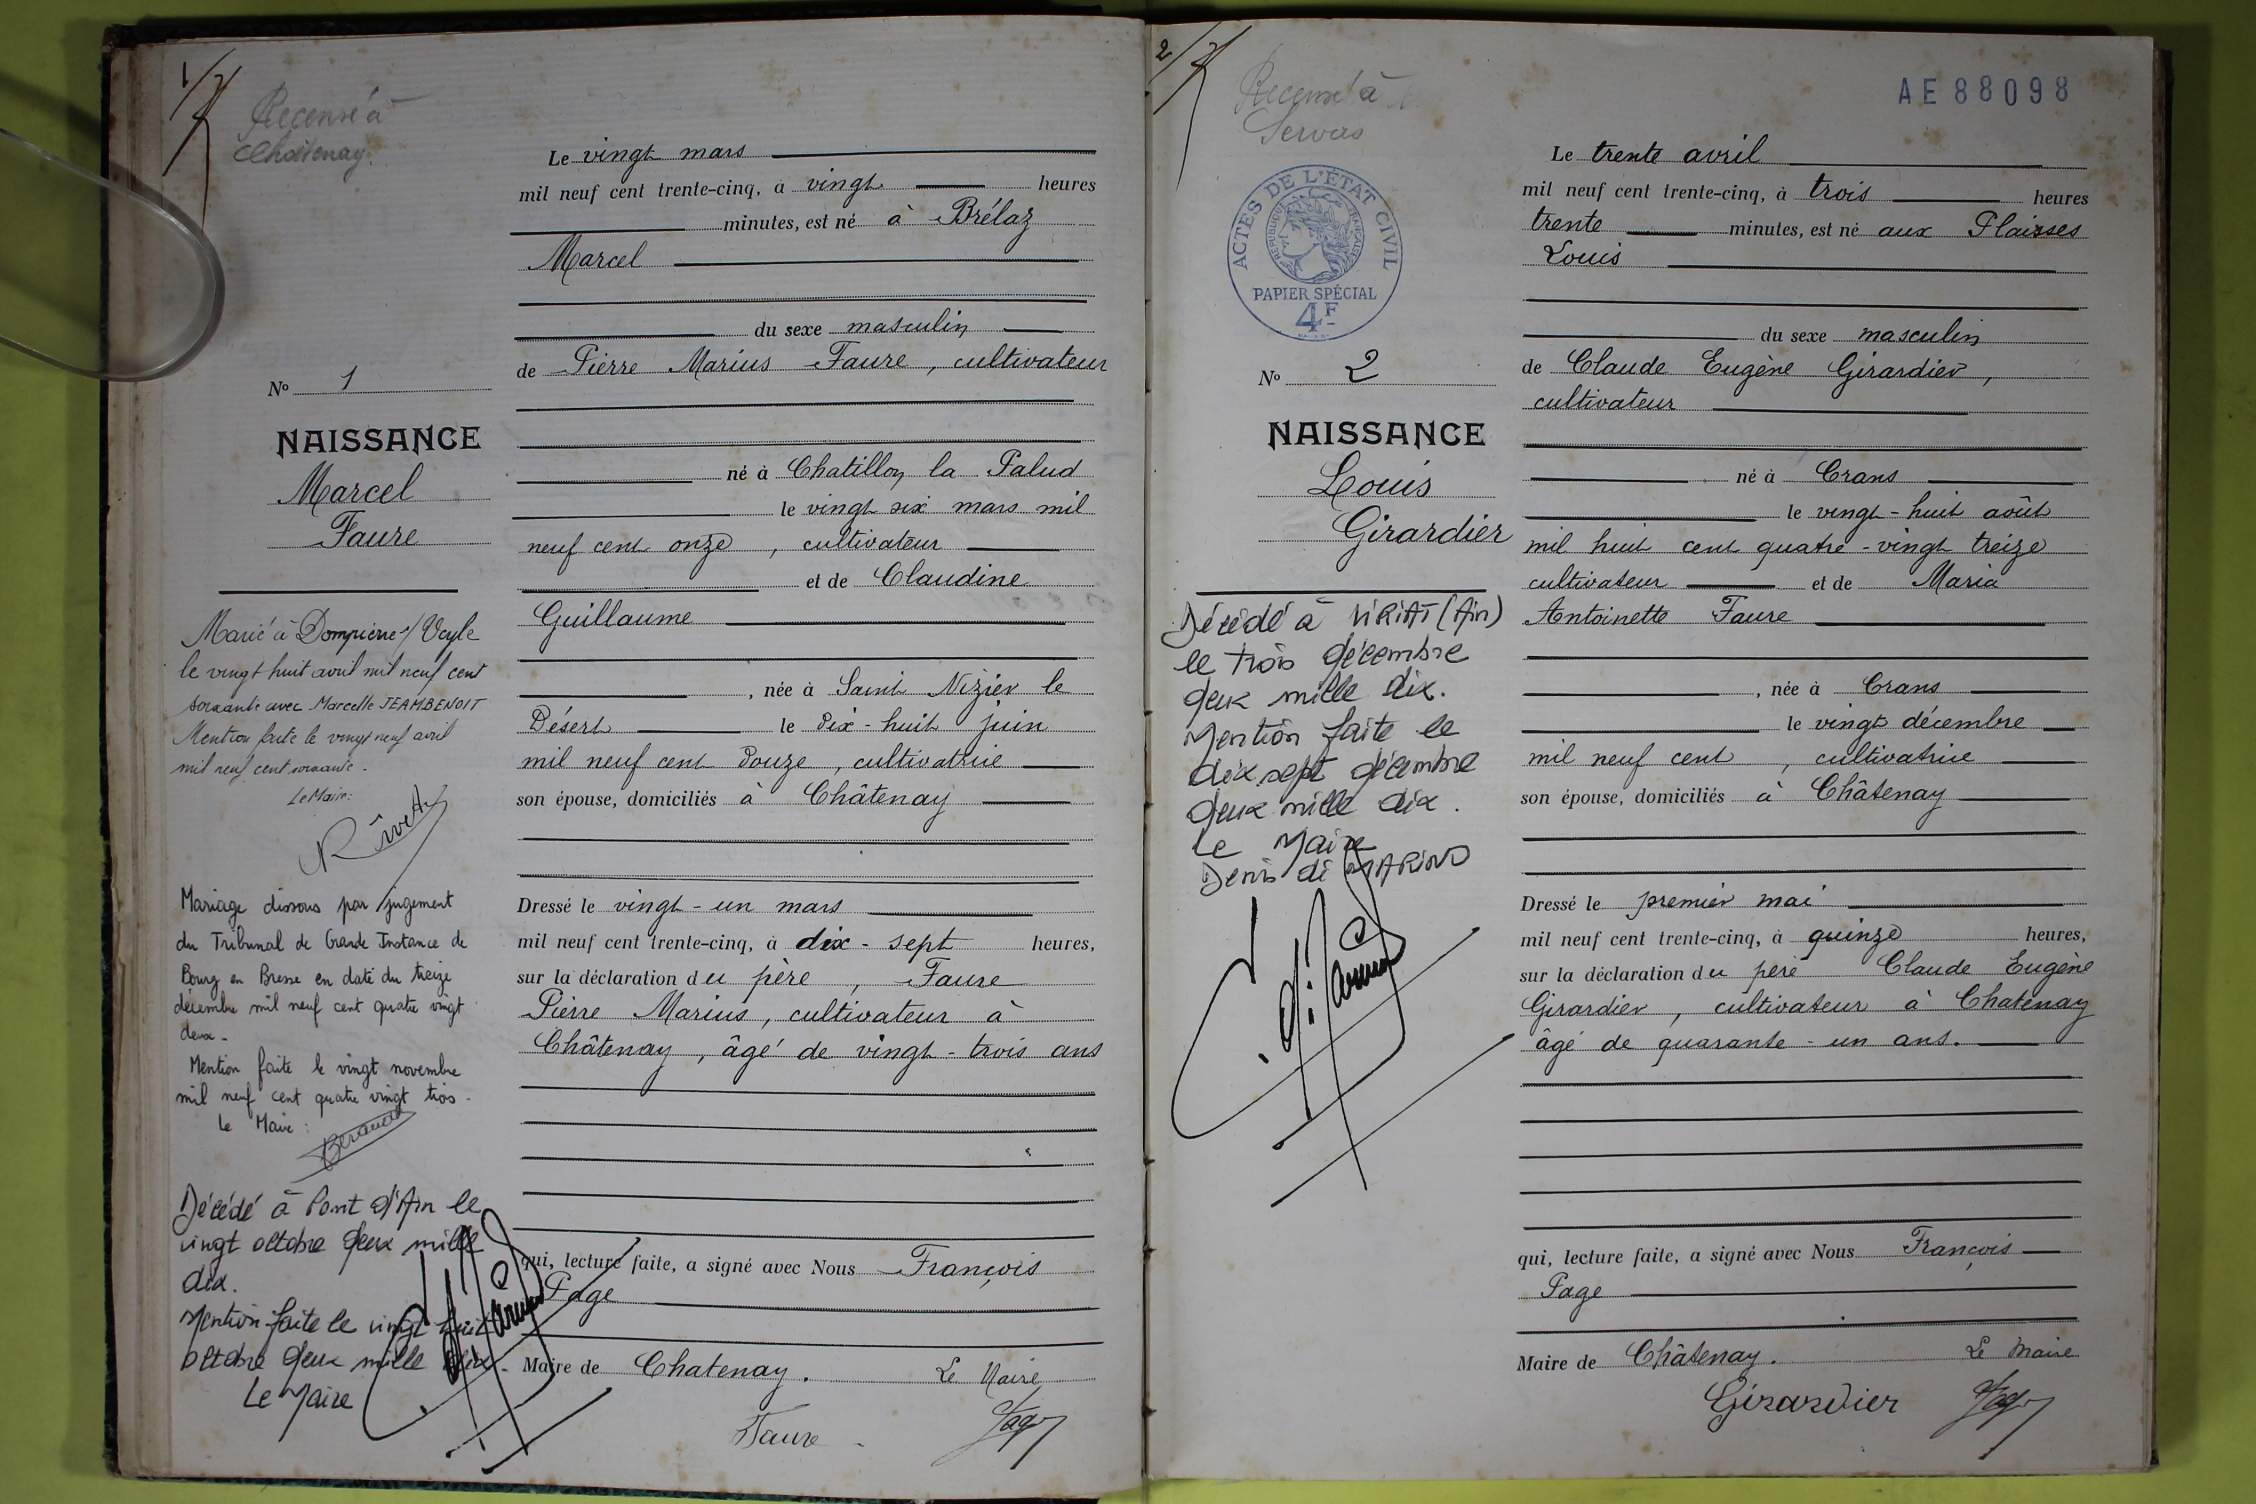 1
Recensé à
Châtenay.
Le vingt mars
mil neuf cent trente-cinq, à vingt heures
minutes, est né à Brélaz
Marcel
du sexe masculin
de Pierre Marius Faure, cultivateur
né à Chatillon la Palud
le vingt six mars mil
neuf cent onze, cultivateur
et de Claudine
Guillaume
, née à Saint Nizier le
Désert le dix-huit juin
mil neuf cent douze, cultivatrice
son épouse, domiciliés à Châtenay
Dressé le vingt-un mars
mil neuf cent trente-cinq, à dix-sept heures,
sur la déclaration du père, Faure
Pierre Marius, cultivateur à
Châtenay, âgé de vingt-trois ans
qui, lecture faite, a signé avec Nous François
Page
Maire de Chatenay. Le Maire
Faure
No 1
NAISSANCE
Marcel
Faure
Marié à Dompierre s/ Veyle
le vingt huit avril mil neuf cent
soixante avec Marcelle JEAMBENOIT
Mention faite le vingt neuf avril
mil neuf cent soixante.
Le Maire:
Mariage dissous par jugement
du Tribunal de Grande Instance de
Bourg en Bresse en date du treize
décembre mil neuf cent quatre vingt
deux.
Mention faite le vingt novembre
mil neuf cent quatre vingt trois.
Le Maire:
Décédé à Pont d'Ain le
vingt octobre deux mille
dix.
Mention faite le vingt huit
octobre deux mille dix.
Le Maire
2
Recensé à
Servas
AE 88098
ACTES DE L'ÉTAT CIVIL
RÉPUBLIQUE FRANÇAISE
PAPIER SPÉCIAL
4F
No 2
NAISSANCE
Louis
Girardier
Décédé à VIRIAT (Ain)
le trois décembre
deux mille dix.
Mention faite le
dix sept décembre
deux mille dix.
Le Maire
Denis di MARINO
Le trente avril
mil neuf cent trente-cinq, à trois heures
trente minutes, est né aux Plaisses
Louis
du sexe masculin
de Claude Eugène Girardier,
cultivateur
né à Crans
le vingt-huit août
mil huit cent quatre-vingt treize
cultivateur et de Maria
Antoinette Faure
, née à Crans
le vingt décembre
mil neuf cent, cultivatrice
son épouse, domiciliés à Châtenay
Dressé le premier mai
mil neuf cent trente-cinq, à quinze heures,
sur la déclaration du père Claude Eugène
Girardier, cultivateur à Chatenay
âgé de quarante-un ans.
qui, lecture faite, a signé avec Nous François
Page
Maire de Châtenay. Le Maire
Girardier